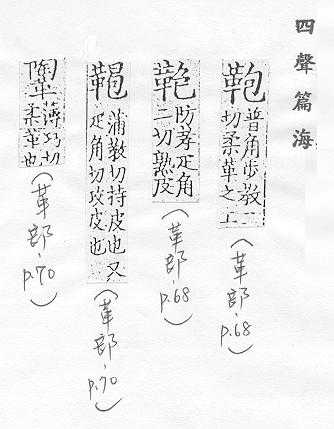 四聲篇海
鞄普角步教二
切柔革之工
(革部,p.68)
防孝疋角
二切熟皮
(革部,p.68)
蒲教切持皮也又
疋角切攻皮也
(革部,p.70)
薄巧切
柔革也
(革部,p.70)